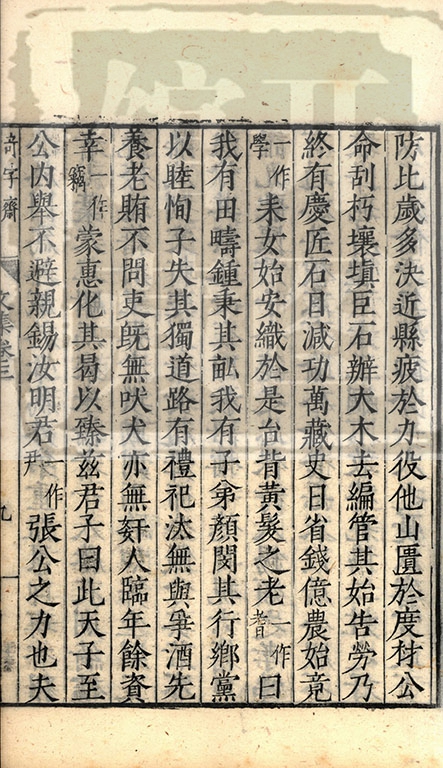 防比歲多決近縣疲於力役他山匱於度材公
命刮朽壤填巨石辦大木去編管其始告勞乃
終有慶匠石日減功萬藏史日省錢億農始竟
一作學耒女始安織於是台背黃髮之老一作耆曰
我有田疇鍾秉其畝我有子弟顏閔其行鄉黨
以睦惸子失其獨道路有禮祀汰無與爭酒先
養老賄不問吏旣無吠犬亦無姧人臨年餘資
幸一作竊蒙惠化其曷以臻茲君子曰此天子至
公內舉不避親錫汝明君一作尹張公之力也夫
奇字齋
文集卷三
九